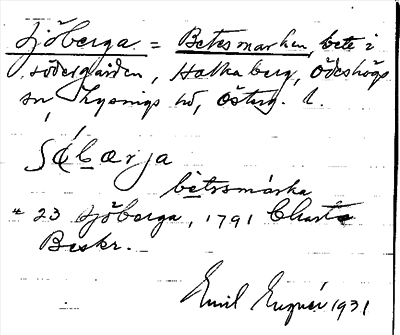 Sjöberga = Betesmarken, bete i
södergården, Holkaberg, Ödeshögs
sn, Lysings hd, Österg. l.
betesmárka
" 23 Sjöberga, 1791 Charte
Beskr.
Emil Eugnér 1931